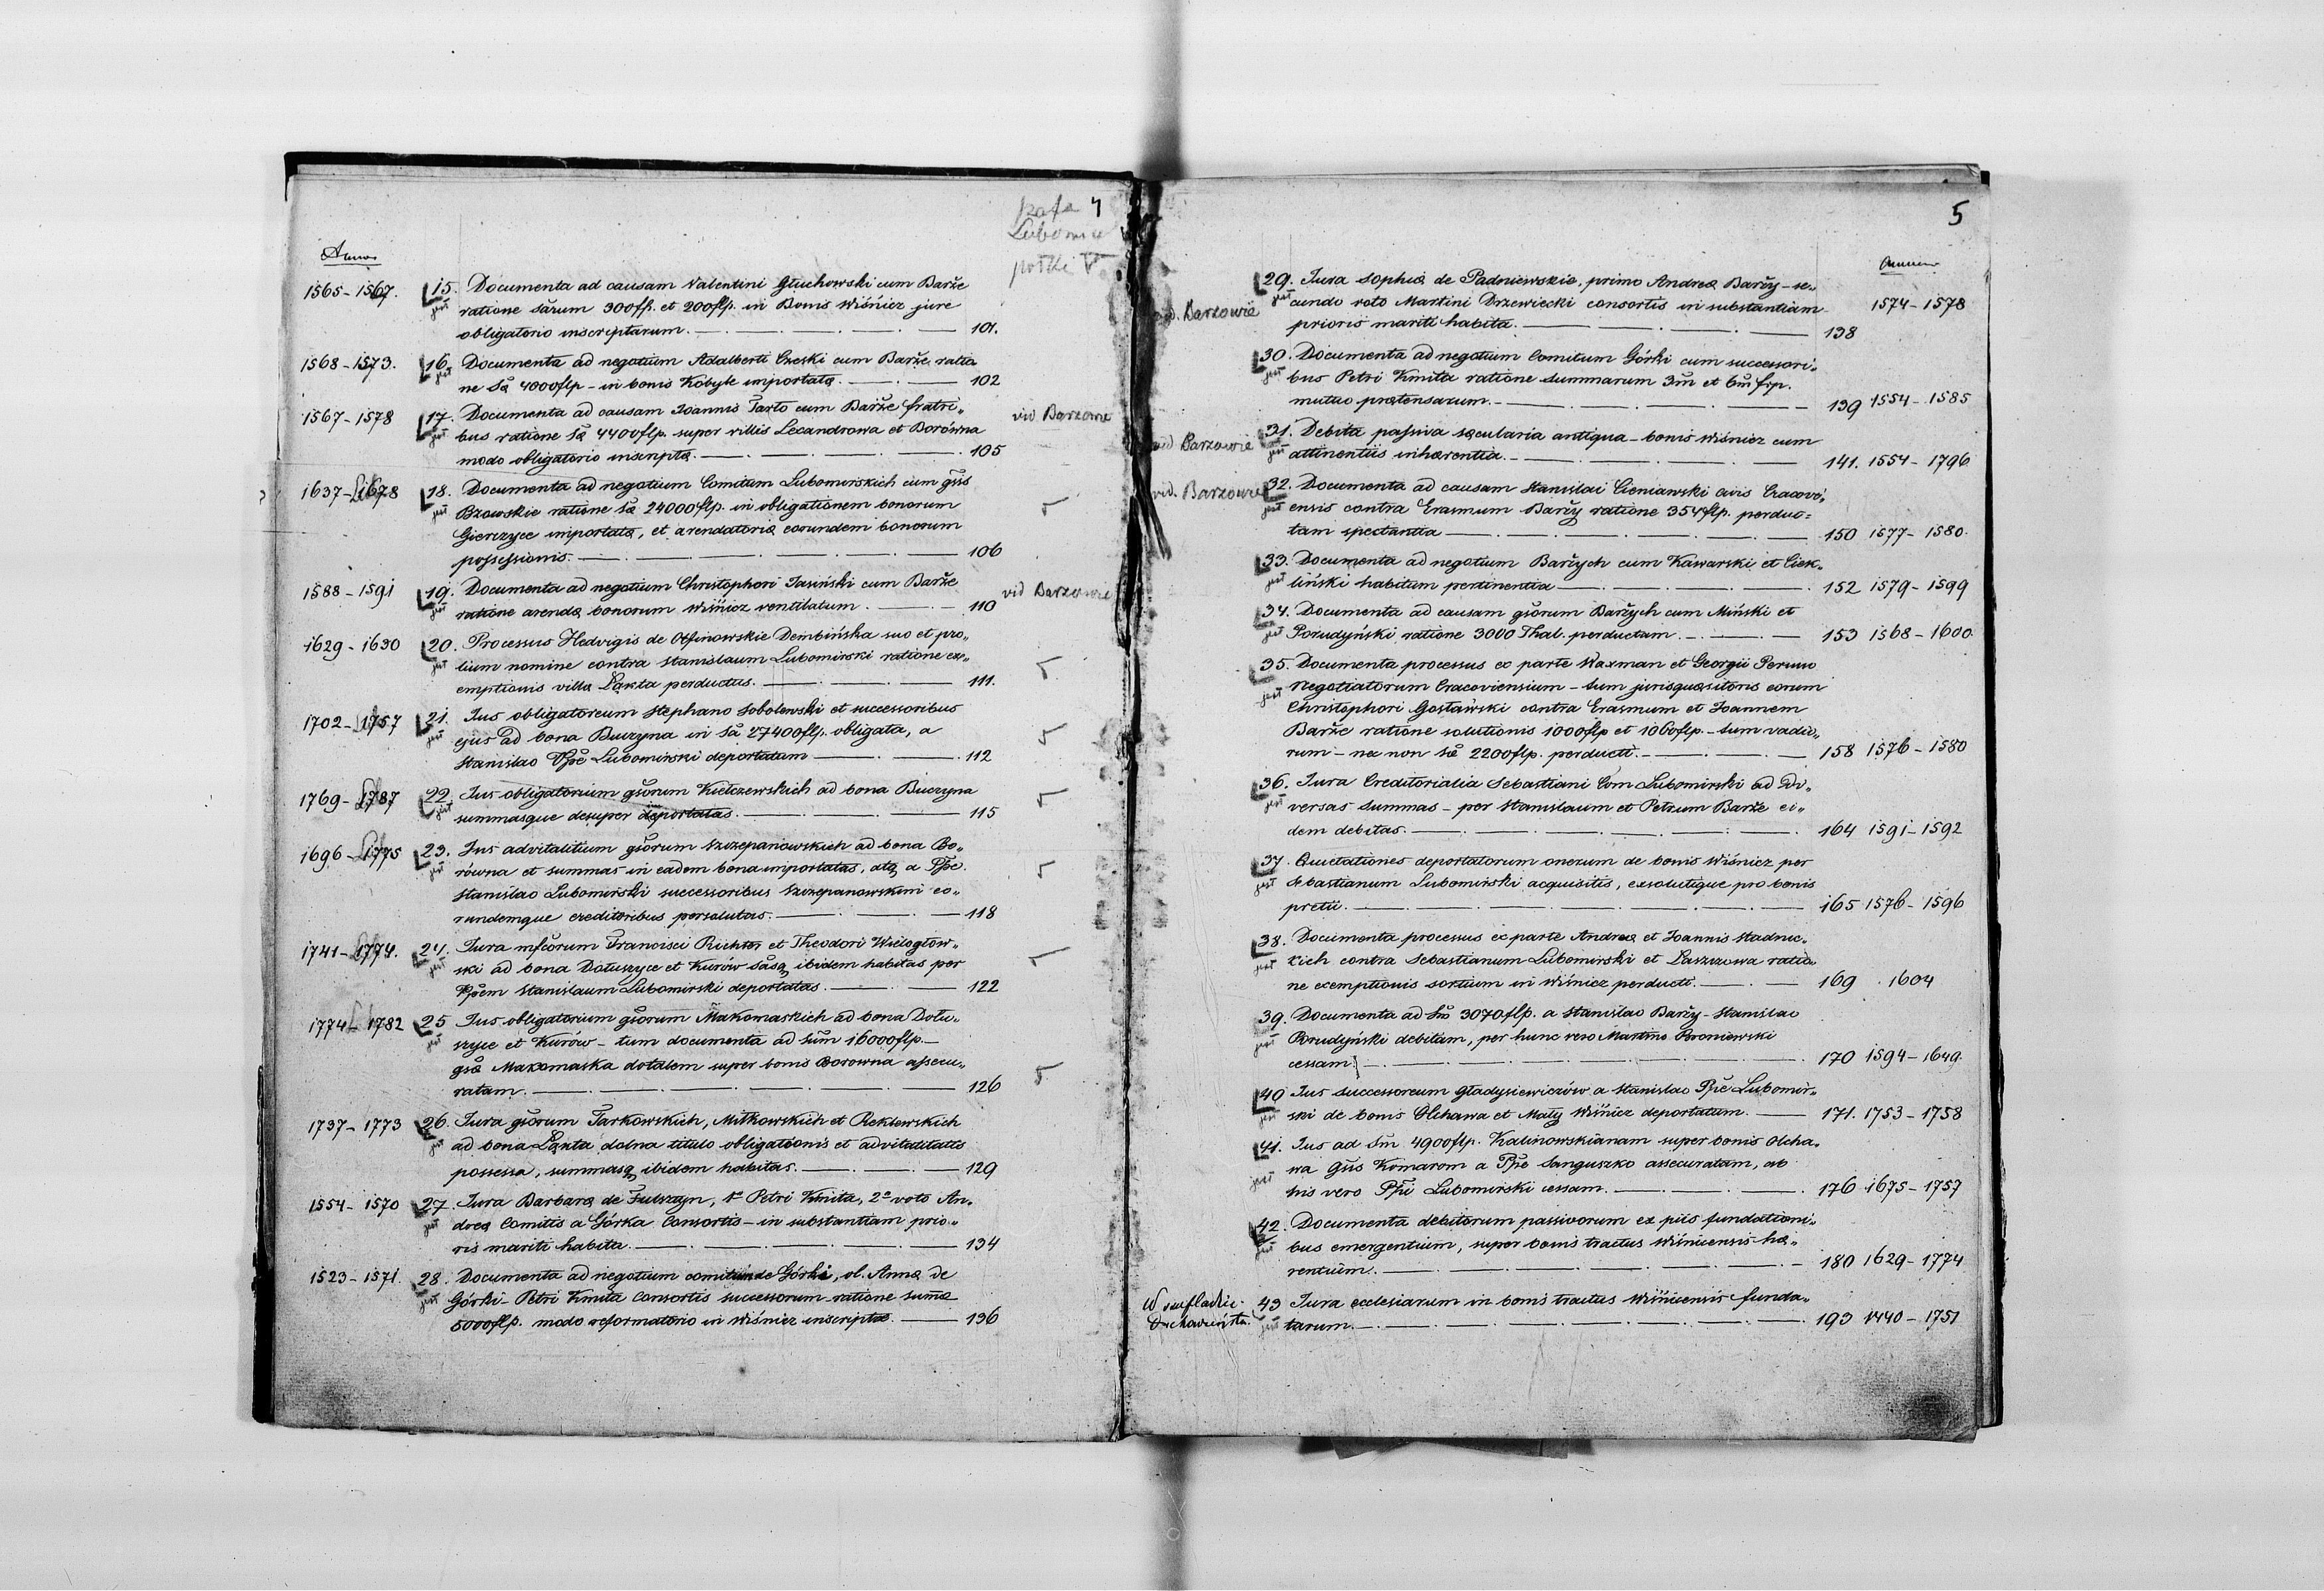 4
Lubomir
półki V
Annus
1565-1567. 15. Documenta ad causam Valentini Głuchowski cum Barže
jest ratione sarum 300 flp. et 200 flp. in Bonis Wiśnicz jure
obligatorio inscriptarum. 101.
1568-1573. 16. Documenta ad negotium Adalberti Czeski cum Barže ratio
jest ne sæ 4000 flp - in bonis Kobyle importatæ. 102
1567-1578 17. Documenta ad causam Joannis Tarło cum Barže fratri„ vid Barzowie
jest bus ratione sæ 4400 flp. super villis Lexandrowa et Borówna
modo obligatorio inscriptæ. 105
1637-1678 18. Documenta ad negotium Comitum Lubomirskich cum gsis
jest Bzowskie ratione sæ 24000 flp. in obligationem bonorum
Gierczyce importatæ, et arendatoriæ eorundem bonorum
possessionis. 106
1588-1591 19. Documenta ad negotium Christophori Jasiński cum Barže vid Barzowie
jest ratione arendæ bonorum Wiśnicz ventilatum. 110
1629-1630 20. Processus Hedvigis de Dembińska suo et pro„
jest lium nomine contra Stanislaum Lubomirski ratione ex„
emptionis villæ Łąkta perductus. 111.
1702-1757 21. Jus obligatoreum Stephano Sobolewski et successoribus
jest ejus ad bona Buczyna in sæ 27400 flp. obligata, a
Stanislao Ppe Lubomirski deportatam 112
1769-1787 22. Jus obligatorium gsorum Kiełczewskich ad bona Buczyna
jest summasque desuper deportatas. 115
1696-1775 23. Jus advitalitium gsorum Szczepanowskich ad bona Bo„
jest równa et summas in eadem bona importatas, atq a Ppe.
Stanislao Lubomirski successoribus Szczepanowskim eo„
rundemque creditoribus persolutas. 118
1741-1774. 24. Jura mfcorum Francisci Richter et Theodori Wielogłow„
jest ski ad bona Dołuszyce et Kurów sasq ibidem habitas per
Ppem Stanislaum Lubomirski deportatas. 122
1774-1782 25 Jus obligatorium gsorum Makomaskich ad bona Dołu„
jest szyce et Kurów - tum documenta ad sum 16000 flp.-
gsæ Makomaska dotalem super bonis Borowna assecu„
ratam. 126
1737-1773 26. Jura gsorum Tarkowskich, Miłkowskich et Reklewskich
jest ad bona Łąkta dolna titulo obligationis et advitalitatis
possessa, summasq ibidem habitas. 129
1554-1570 27. Jura Barbaræ de Fulsztyn, 1º Petri Kmita, 2º voto An„
jest dreæ Comitis a Górka Consortis - in substantiam prio„
ris mariti habita. 134
1523-1571. 28. Documenta ad negotium comitum de Górki, ol. Annæ de
jest Górki - Petri Kmita Consortis successorum - ratione summæ
5000 flp. modo reformatorio in Wiśnicz inscriptæ. 136
5
Annus
29. Jura Sophiæ de Padniewskie, primo Andreæ Baržy - se„
vid. Barzowie jest cundo voto Martini Drzewiecki consortis in substantiam 1574-1578
prioris mariti habita. 138
30. Documenta ad negotium Comitum Górki cum successori„
jest bus Petri Kmita ratione summarum 3m et 6m frp.
mutuo prætensarum. 139 1554-1585
vid Barzowie 31. Debita passiva sæcularia antiqua - bonis Wiśnicz cum
jest attinentiis inhærentia. 141. 1554-1796
vid. Barzowie 32. Documenta ad causam Stanislai Cieniawski civis Cracovi„
jest ensis contra Erasmum Baržy ratione 354 flp. perduc=
tam spectantia 150 1577-1580.
33. Documenta ad negotium Baržych cum Kawarski et Ciek„
jest liński habitum pertinentia 152 1579-1599
34. Documenta ad causam gsorum Baržych cum Miński et
jest Porudyński ratione 3000 Thal. perductam. 153 1568-1600.
35. Documenta processus ex parte Waxman et Georgii Perinso
jest Negotiatorum Cracoviensium - tum jurisquæsitoris eorum
Christophori Gostawski contra Erasmum et Joannem
Barže ratione solutionis 1000 flp et 1060 flp. - tum vadio„
rum - nec non sæ 2200 flp. perducti. 158 1576-1580
36. Jura Creditorialia Sebastiani Com Lubomirski ad Di„
jest versas summas - per Stanislaum et Petrum Barže ei„
dem debitas. 164 1591-1592
37. Quietationes deportatorum onerum de bonis Wiśnicz per
jest Sebastianum Lubomirski acquisitis, exsolutique pro bonis
pretii. 165 1576-1596
38. Documenta processus ex parte Andreæ et Joannis Stadnic„
jest kich contra Sebastianum Lubomirski et Łaszczowa ratio„
ne exemptionis sortium in Wiśnicz perducti. 169 1604
39. Documenta ad Sm 3070 flp. a Stanislao Baržy - Stanislao
jest Porudyński debitam, per hunc vero Martino Broniewski
cessam. 170 1594-1649.
40 Jus successoreum Gładysiewiczów a Stanislao Ppe Lubomir„
jest ski de bonis Olchawa et Mały Wiśnicz deportatum. 171. 1753-1758
41. Jus ad Sm 4900 flp. Kalinowskianam super bonis Olcha„
jest wa Gsis Komarom a Ppe Sanguszko assecuratam, ab
his vero Ppi Lubomirski cessam. 176 1675-1757
42. Documenta debitorum passivorum ex piis fundationi„
jest bus emergentium, super bonis tractus Wiśnicensis hæ„
rentium. 180 1629-1774
W szufladzie 43 Jura ecclesiarum in bonis tractus Wiśnicensis funda„
Duchowieństw. jest tarum. 193 1440-1751